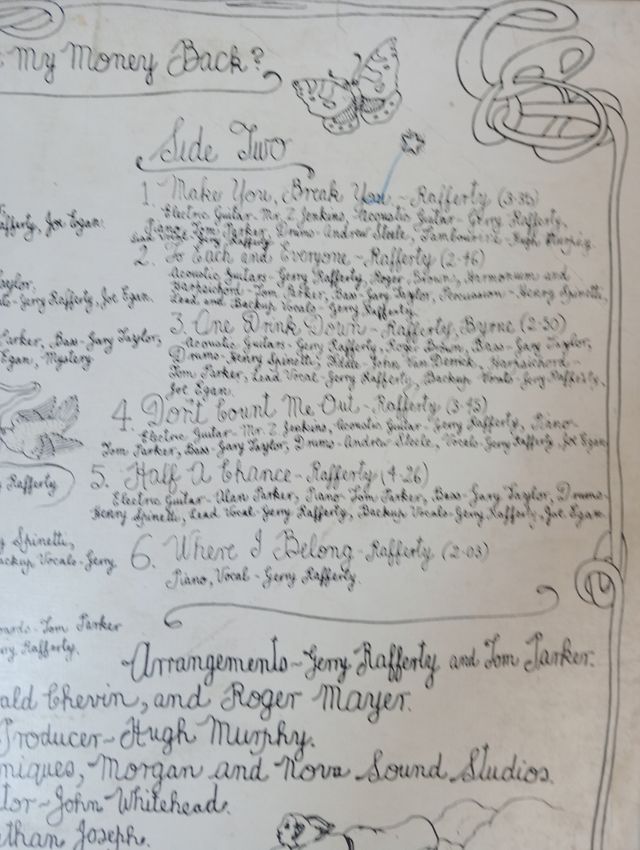 My Money Back?
Side Two
1. Make You, Break You - Rafferty (3-35)
Electric Guitar - Mr. Z Jenkins, Acoustic Guitar - Gerry Rafferty,
Piano - Tom Parker, Drums - Andrew Steele, Tambourine - Hugh Murphy,
Lead Vocal - Gerry Rafferty
2. To Each and Everyone - Rafferty (2-46)
Acoustic Guitars - Gerry Rafferty, Roger Brown, Harmonium and
Harpsichord - Tom Parker, Bass - Gary Taylor, Percussion - Henry Spinetti,
Lead and Backup Vocals - Gerry Rafferty.
3. One Drink Down - Rafferty, Byrne (2-30)
Acoustic Guitars - Gerry Rafferty, Roger Brown, Bass - Gary Taylor,
Drums - Henry Spinetti, Fiddle - John Van Derrick, Harpsichord -
Tom Parker, Lead Vocal - Gerry Rafferty, Backup Vocals - Gerry Rafferty,
Joe Egan.
4. Don't Count Me Out - Rafferty (3-45)
Electric Guitar - Mr. Z Jenkins, Acoustic Guitar - Gerry Rafferty, Piano -
Tom Parker, Bass - Gary Taylor, Drums - Andrew Steele, Vocals - Gerry Rafferty, Joe Egan
5. Half A Chance - Rafferty (4-26)
Electric Guitar - Alan Parker, Piano - Tom Parker, Bass - Gary Taylor, Drums -
Henry Spinetti, Lead Vocal - Gerry Rafferty, Backup Vocals - Gerry Rafferty, Joe Egan
6. Where I Belong - Rafferty (2-03)
Piano, Vocal - Gerry Rafferty.
Rafferty, Joe Egan.
Taylor,
Gerry Rafferty, Joe Egan.
Parker, Bass - Gary Taylor,
Egan, Mystery
Rafferty
Spinetti,
Backup Vocals - Gerry
Tom Parker
Rafferty.
Arrangements - Gerry Rafferty and Tom Parker.
ald Chevin, and Roger Mayer.
Producer - Hugh Murphy.
niques, Morgan and Nova Sound Studios.
tor - John Whitehead.
athan Joseph.